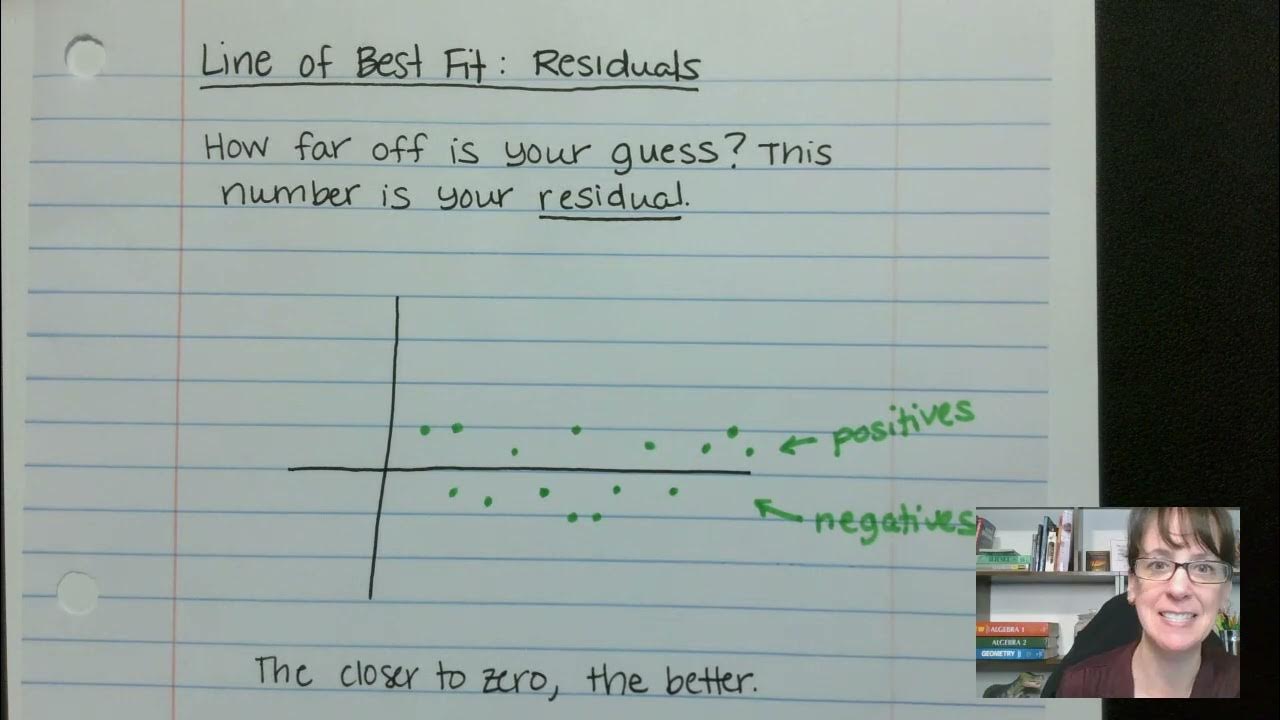 Line of Best Fit: Residuals
How far off is your guess? This
number is your residual.
← positives
← negatives
The closer to zero, the better.
ALGEBRA 1
ALGEBRA 2
GEOMETRY